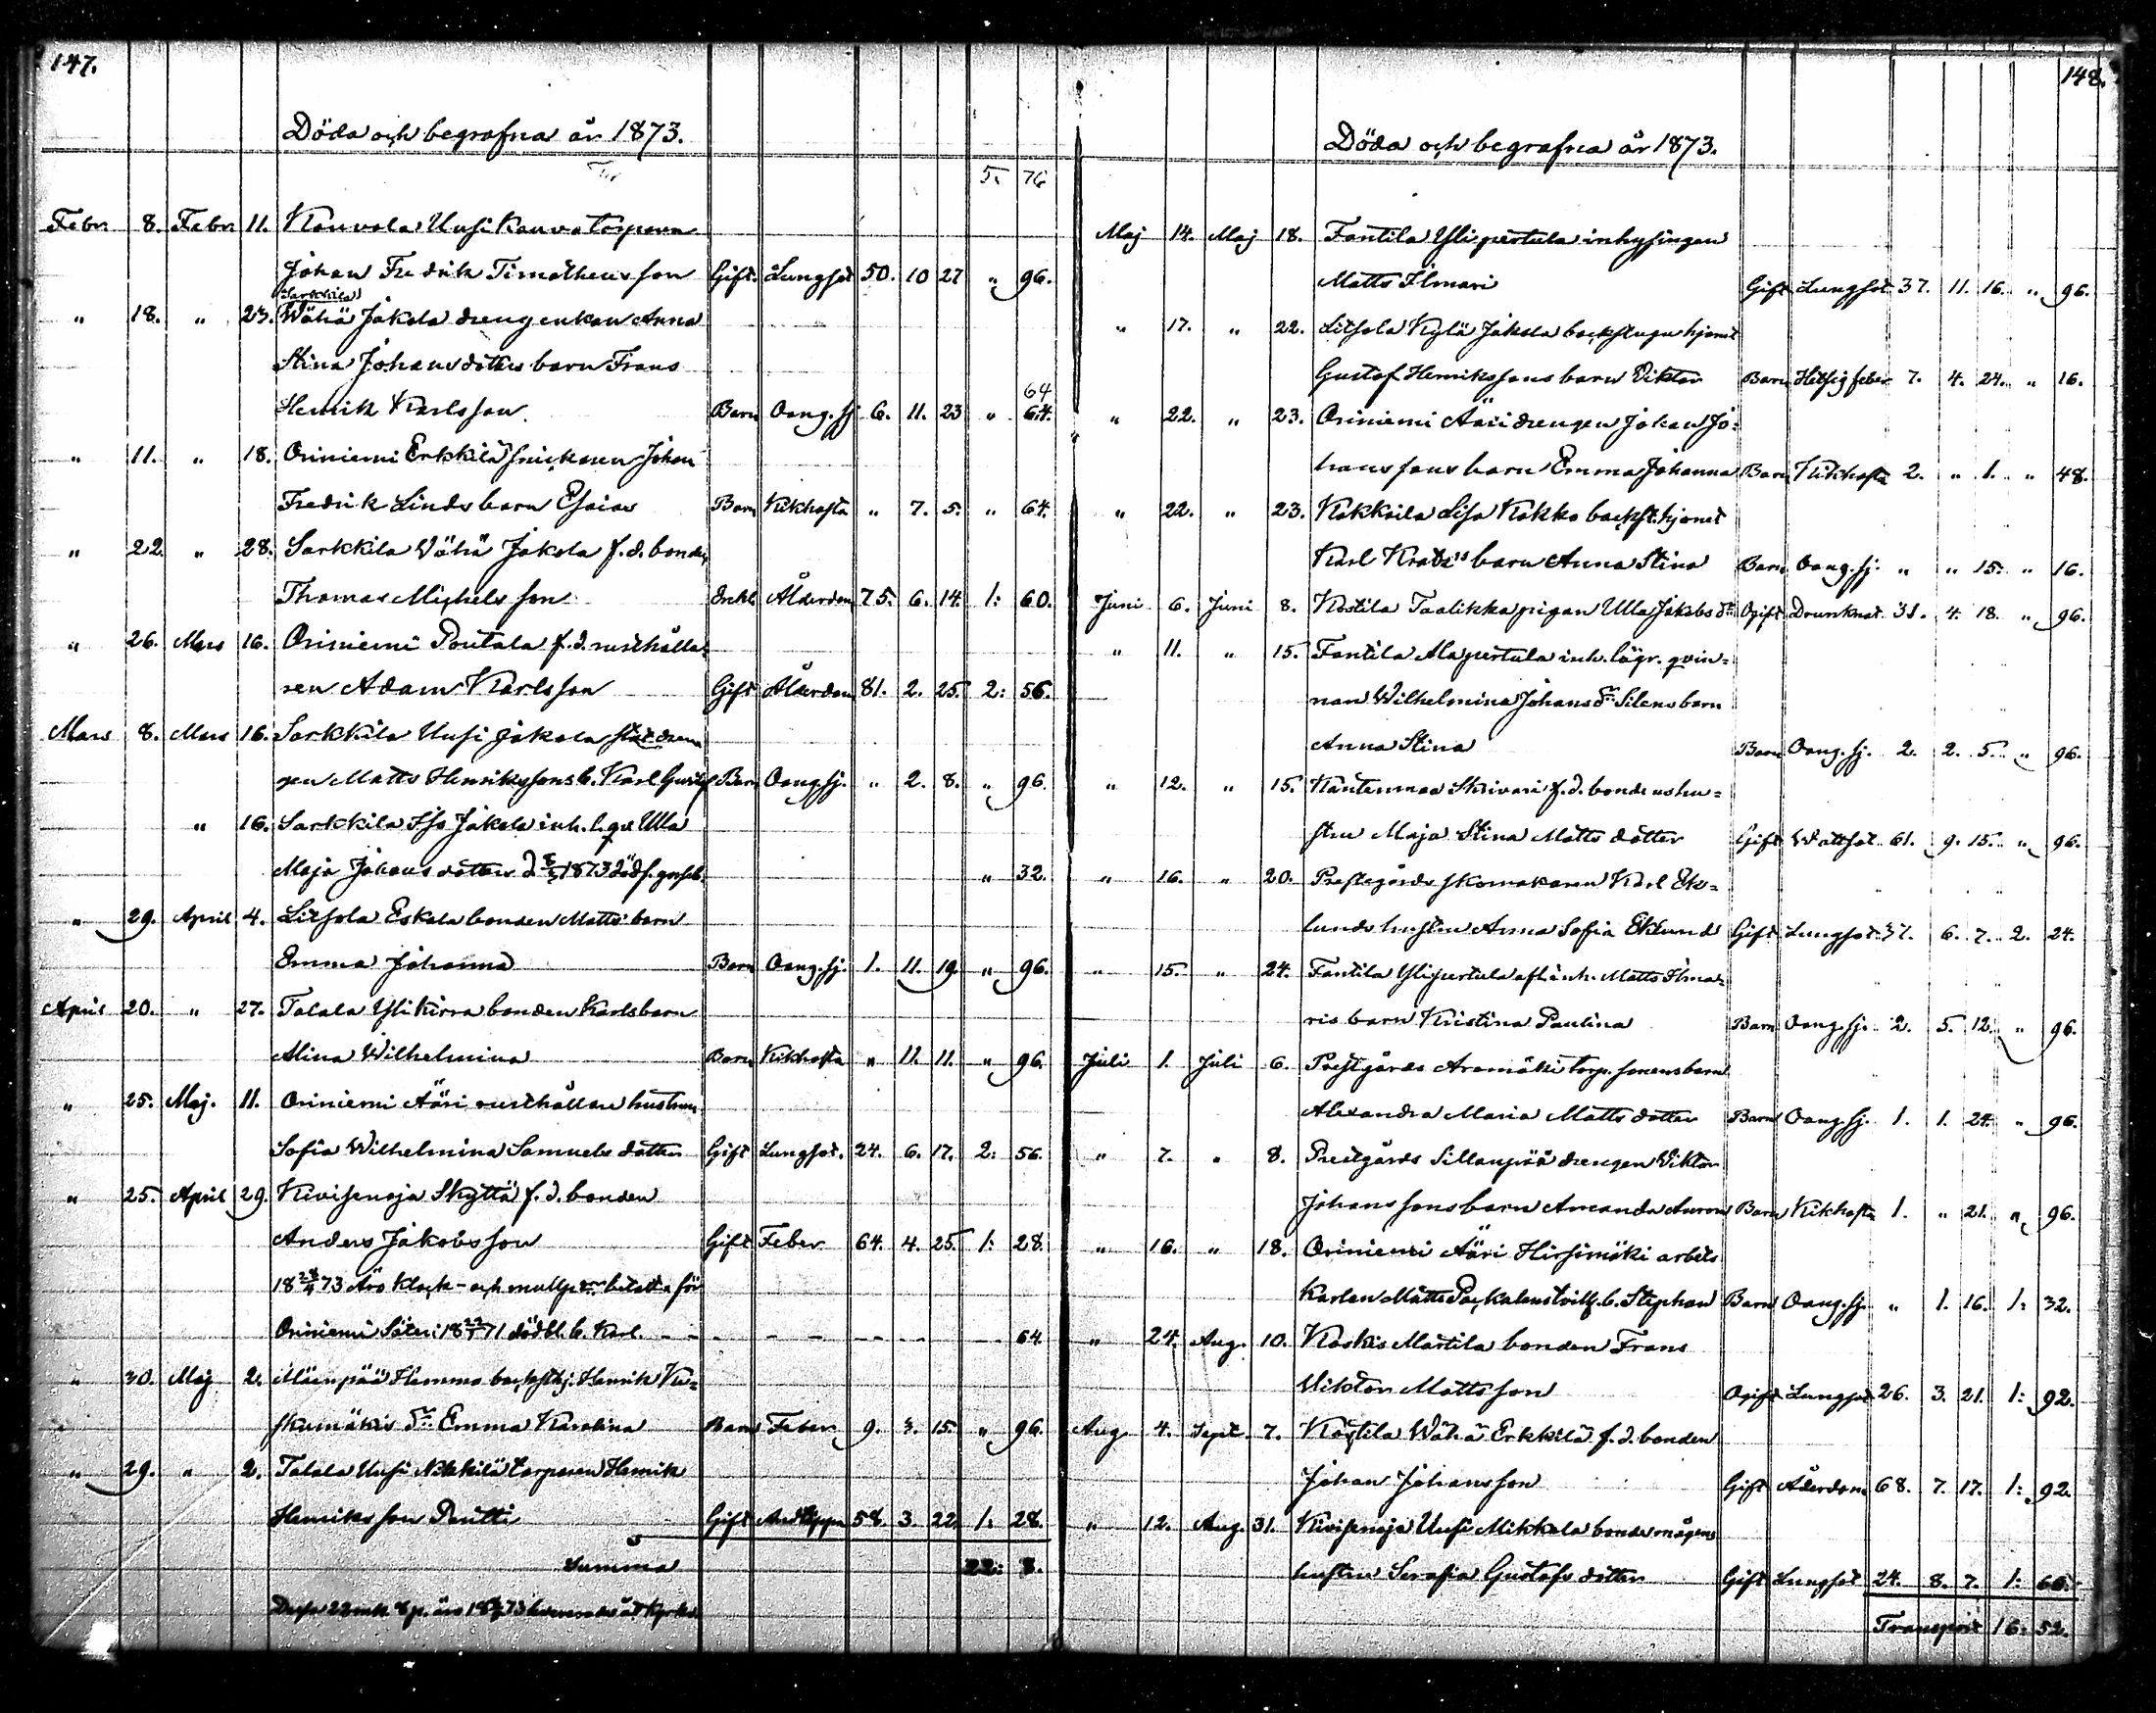 147.
Döda och begrafna år 1873.
5. 76
Febr 8. Febr 11. Kauvola Uusi Kauva torparen
Johan Fredrik Timotheusson Gift. Lungsot 50. 10 27 " 96.
Sarkkila
" 18. " 23. Wähä Jakola drengenkan Anna
Stina Johansdotters barn Frans
64
Henrik Karlsson Barn Oang. sj 6. 11. 23 " 64.
" 11. " 18. Oriniemi Erkkilä snickaren Johan
Fredrik Linds barn Esaias Barn Kikhosta " 7. 5. " 64.
" 22. " 28. Sarkkila Wähä Jakola f.d. bonden
Thomas Michelsson Enkl. Ålderdom 75. 6. 14. 1: 60.
" 26. Mars 16. Oriniemi Poutala f.d. rusthålla=
ren Adam Karlsson Gift Ålderdom 81. 2. 25. 2: 56.
Mars 8. Mars 16. Sarkkila Uusi Jakola statdren
gen Matts Henrikssons b. Karl Gustaf Barn Oang.sj. " 2. 8. " 96.
" 16. Sarkkila Iso Jakola inh. l. qv. Ulla
Maja Johansdotters d. 1873 dödf. gosseb. " 32.
" 29. April 4. Litsola Eskola bonden Matts' barn
Emma Johanna Barn Oang.sj. 1. 11. 19 " 96.
April 20. " 27. Talala Ylikirra bonden Karls barn
Alina Wilhelmina Barn Kikhosta " 11. 11. " 96.
" 25. Maj. 11. Oriniemi Ääri rusthållare hustrun
Sofia Wilhelmina Samuels dotter Gift Lungsot. 24. 6. 17. 2: 56.
" 25. April 29. Kivisenoja Skyttä f.d. bonden
Anders Jakobsson Gift Feber 64. 4. 25. 1: 28.
18 28/4 73 Äro klock- och mullp:r betalte för
Oriniemi Säteri 18 71 dödbl. b. Karl. - - - - - - 64.
" 30. Maj 2. Mäenpää Hemmo backsthj. Henrik Ku=
skumäkis d:r Emma Karolina Barn Feber 9. 3. 15. " 96.
" 29. " 2. Talala Uusi Nikkilä torparen Henrik
Henriksson Prutti Gift 58. 3. 22. 1: 28.
Summa 22: 8.
Dessa 22 mk 8 p. äro 18 73 åt kyrkan
148.
Döda och begrafna år 1873.
Maj 14. Maj 18. Fantila Ylipertula inhysingen
Matts Ilmari Gift Lungsot 37. 11. 16. " 96.
" 17. " 22. Litsola Kylä Jakola backstugu hjonet
Gustaf Henrikssons barn Viktor Barn Hetsig feber 7. 4. 24. " 16.
" 22. " 23. Oriniemi Ääri drengen Johan Jo=
hanssons barn Emma Johanna Barn Kikhosta 2. " 1. " 48.
" 22. " 23. Kokkoila Liso Kokko backst.hjonet
Karl barn Anna Stina Barn Oang.sj. " " 15. " 16.
Juni 6. Juni 8. Kostila Taalikka pigan Ulla Jakobs d:r Ogift Drunknat 31. 4. 18. " 96.
" 11. " 15. Fantila Alapertula inh. lägr. qvin=
nan Wilhelmina Johansd:r Silens barn
Anna Stina Barn Oang.sj. 2. 2. 5. " 96.
" 12. " 15. Kantenmaa Skrivari f.d. bondens hu=
stru Maja Stina Matts dotter Gift Wattsot 61. 9. 15. " 96.
" 16. " 20. Prestegårds skomakaren Karl Ek=
lunds hustru Anna Sofia Eklund Gift Lungsot 37. 6. 7. 2. 24.
" 15. " 24. Fantila Ylipertula afl. inh. Matts Ilma=
ris barn Kristina Paulina Barn Oang.sj. 2. 5. 12. " 96.
Juli 1. Juli 6. Prestgårds Aromäki torp. sonens barn
Alexandra Maria Matts dotter Barn Oang.sj. 1. 1. 24. " 96.
" 7. " 8. Prestgårds Sillanpää drengen Viktor
Johanssons barn Amanda Aurora Barn Kikhosta 1. " 21. " 96.
" 16. " 18. Oriniemi Ääri Hirsimäki arbets
karlen Matts Packalens tvill. b. Stephan Barn Oang.sj. " 1. 16. 1: 32.
" 24. Aug. 10. Koskis Martila bonden Frans
Viktor Mattsson Ogift Lungsot 26. 3. 21. 1: 92.
Aug. 4. Sept. 7. Kostila Wähä Erkkilä f.d. bonden
Johan Johansson Gift Ålderdom 68. 7. 17. 1: 92.
" 12. Aug. 31. Kivisenoja Uusi Mikkola bonde mågens
hustru Serafia Gustafs dotter Gift Lungsot 24. 8. 7. 1: 60.
Transport 16: 52.